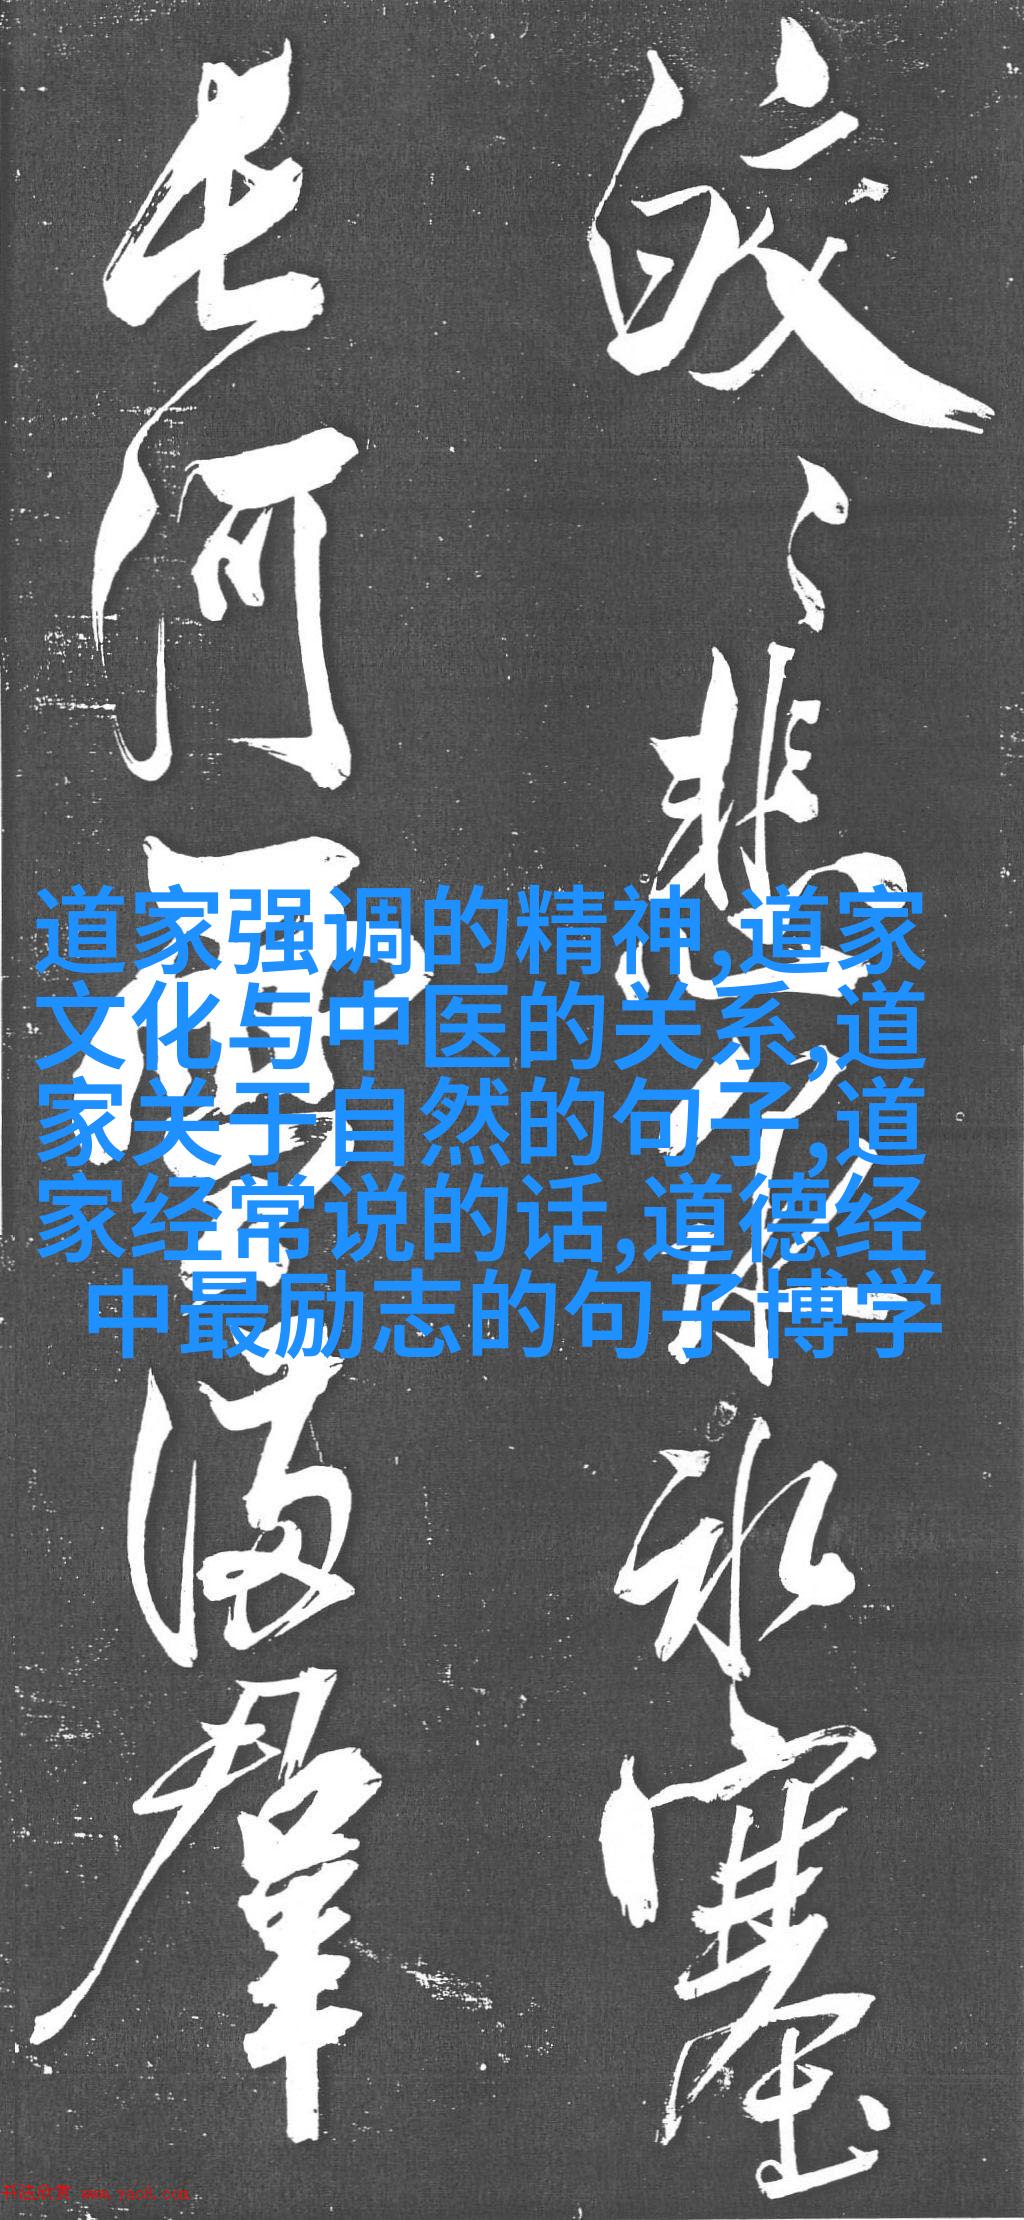 皎々悲泉氷塞
長河雪滿羣
道家强调的精神,道家
文化与中医的关系,道
家关于自然的句子,道
家经常说的话,道德经
中最励志的句子博学
书法欣赏 www.yac8.com